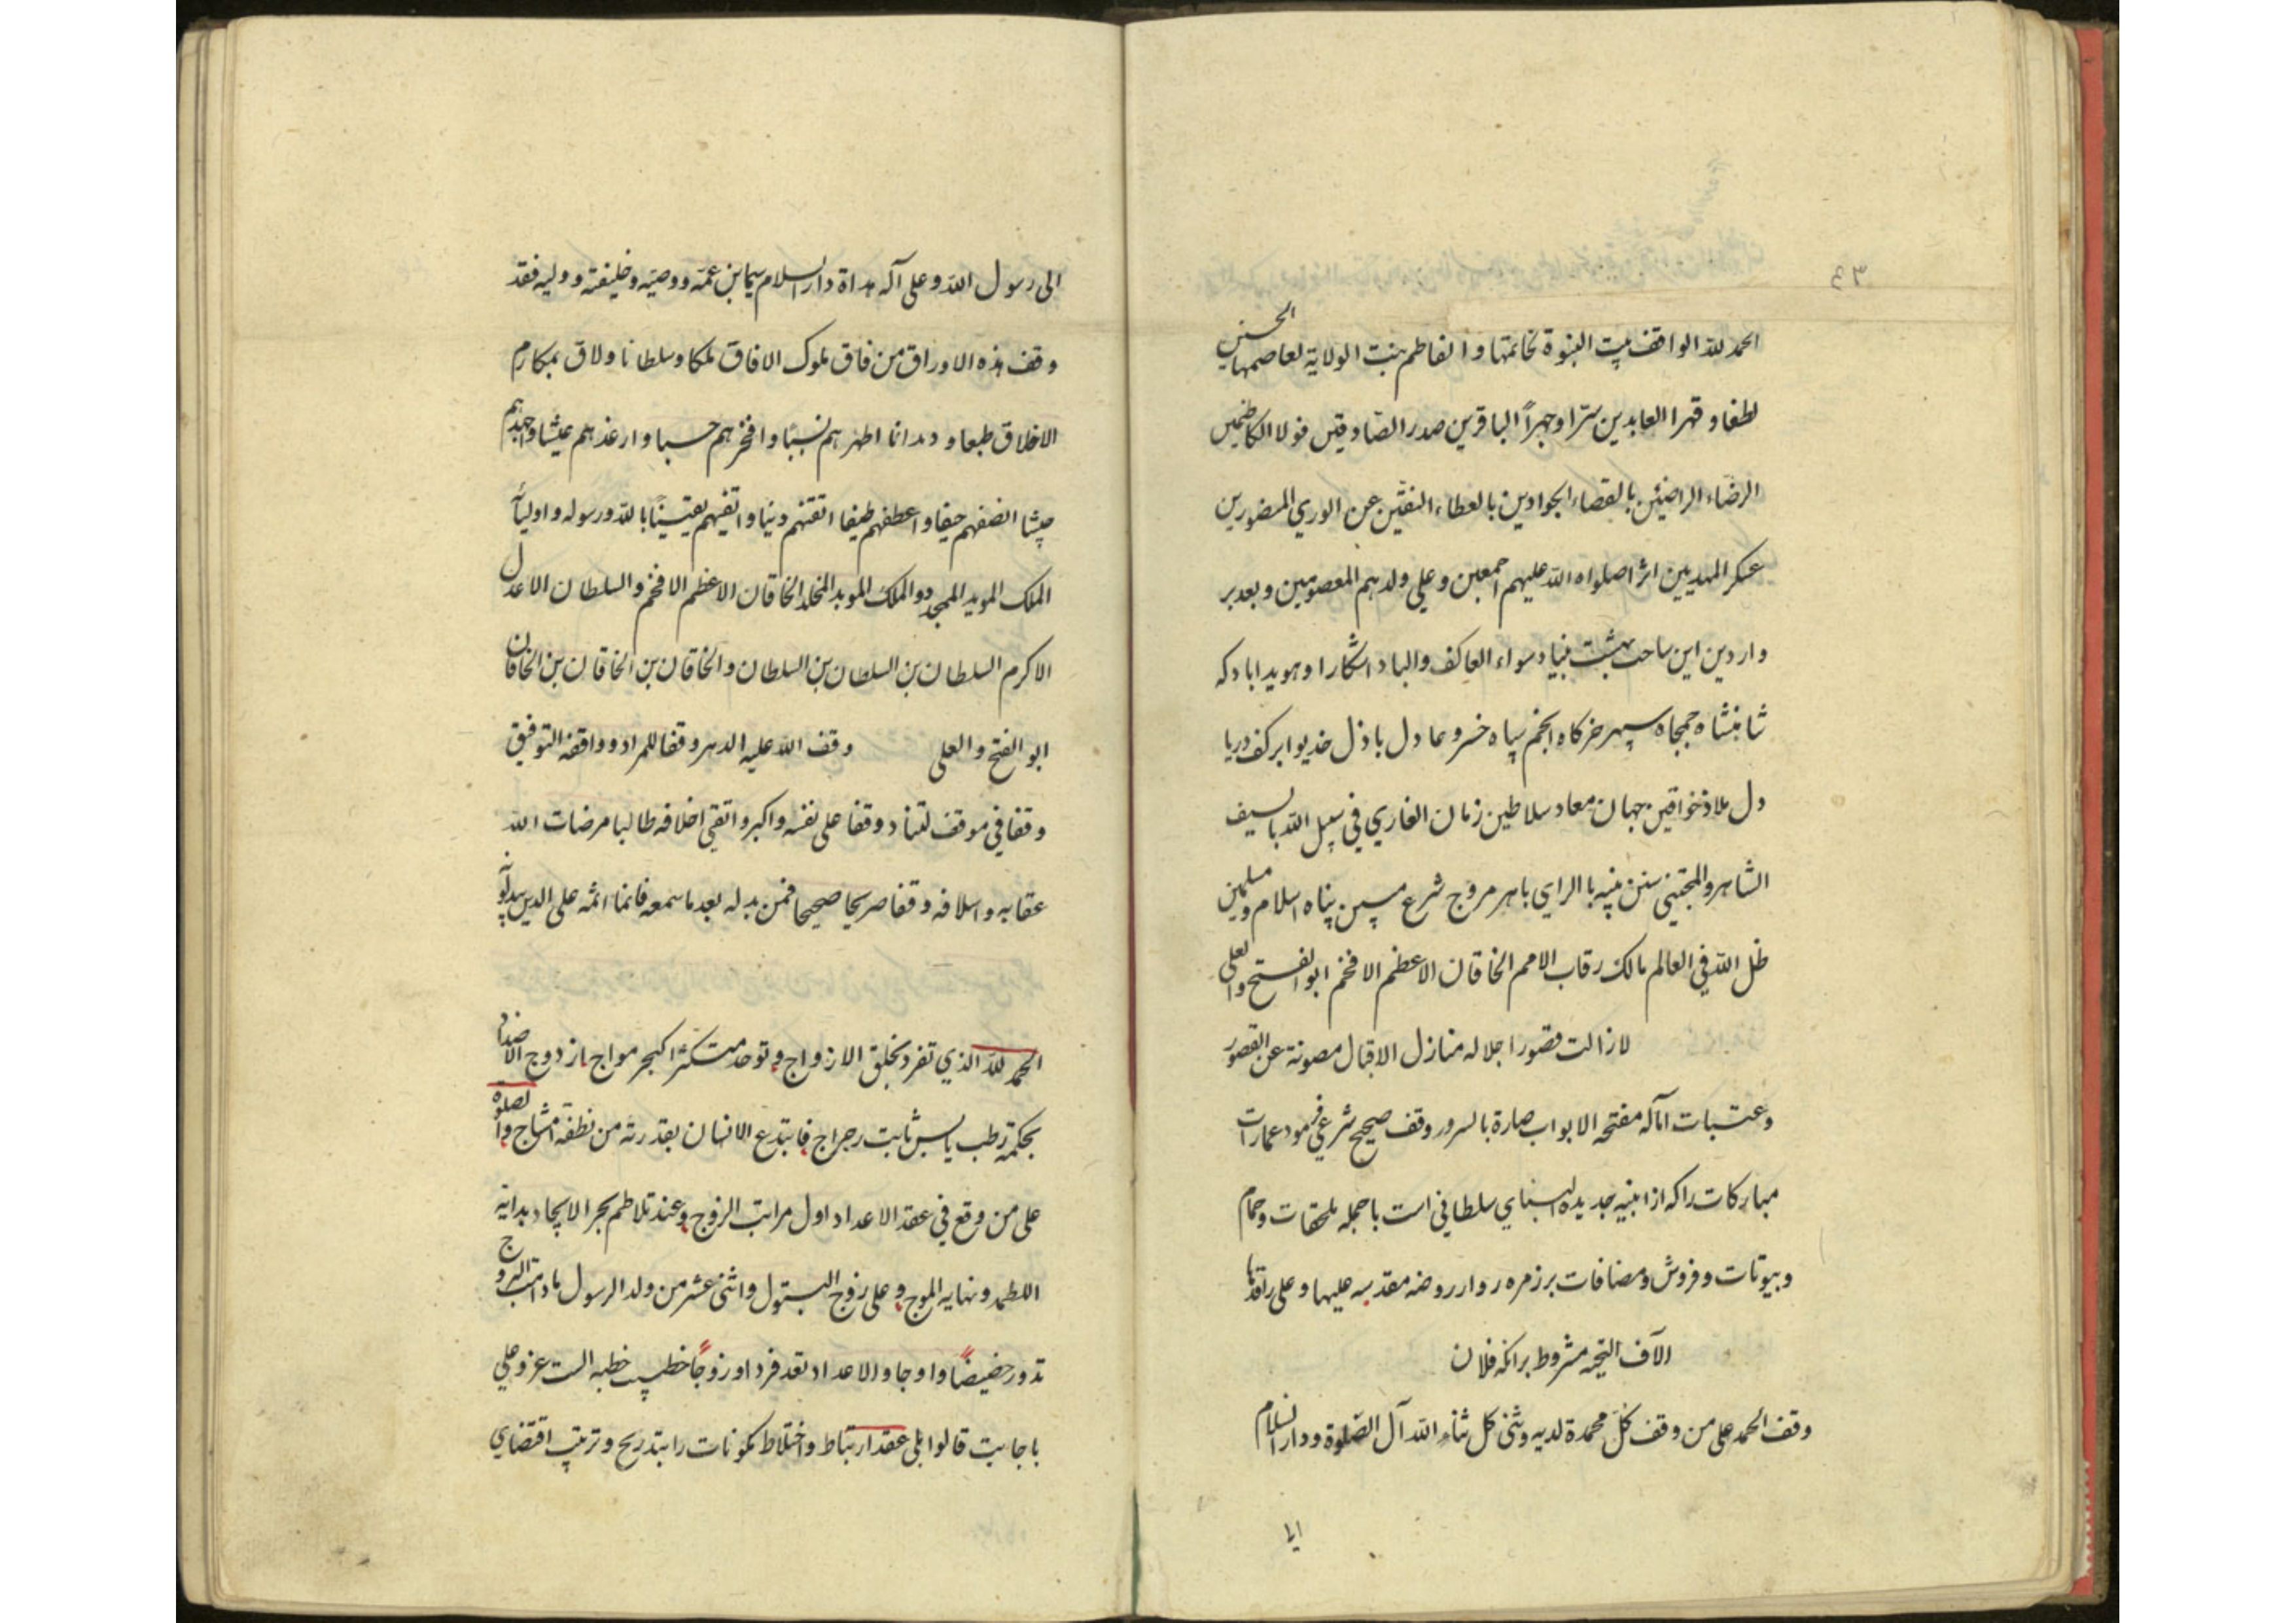 ٤٣
الحمد لله الواقف بيت النبوة لخاتمتها و الفاطم بنت الولاية لعاصمها الحسنين
لطفا و قهرا العابدين سرّا و جهراً الباقرين صدر الصادقين قولا الكاظمين
الرضاء الراضيين بالقضاء الجوادين بالعطاء النقيّين عن الوري المنصورين
عسكر المهديين اثرا صلواه الله عليهم اجمعين و علي ولدهم المعصومين و بعد بر
واردين اين ساحت بهشت بنياد سواء العاكف والباد اشكارا و هويدا باد كه
شاهنشاه جمجاه سپهر خركاه انجم سپاه خسرو عادل باذل خديو ابر كف دريا
دل ملاذ خواقين جهان معاد سلاطين زمان الغازي في سبيل الله بالسيف
الشاهر والمجتبي سنن نبيه بالراي باهر مروج شرع مبين پناه اسلام و مسلمين
ظل الله في العالم مالك رقاب الامم الخاقان الاعظم الافخم ابو الفتح والعلي
لا زالت قصور اجلاله منازل الاقبال مصونة عن القصور
وعتبات اماله مفتحه الابواب صارة بالسرور وقف صحيح شرعي فرمود عمارات
مباركات را كه از ابنيه جديده البناي سلطاني است با جمله ملحقات و حمام
و بيوتات و فروش و مضافات بر زمره زوار روضه مقدسه عليها و علي راقدها
الآف التحيه مشروط برانكه فلان
وقف الحمد على من وقف كلّ محمدة لديه وثنى كل ثناء الله آل الصّلوة ودار السلام
الي
الى رسول الله و على آله هداة دار السلام سيما بن عمّه و وصيّه و خليفته و وليه فقد
وقف هذه الاوراق من فاق ملوك الافاق ملكا و سلطانا ولاق بمكارم
الاخلاق طبعا و ديدانا اطهرهم نسبًا وافخرهم حسبا و ارغدهم عيشا و اجهدهم
جيشا انصفهم حيفا و اعطفهم طيفا اتقنهم دينا و اتقيهم يقيناً بالله ورسوله و اوليائه
الملك المويد الممجد و الملك المويد المخلد الخاقان الاعظم الافخم و السلطان الاعدل
الاكرم السلطان بن السلطان بن السلطان و الخاقان بن الخاقان بن الخاقان
ابو الفتح والعلى وقف الله عليه الدهر وقفا للمراد و واقفه التوفيق
وقفا في موقف لتناد وقفا على نفسه و اكبر و اتقي اخلافه طالبا مرضات الله
عقابه و اسلافه وقفا صريحا صحيحا فمن بدله بعد ما سمعه فانما اثمه على الذين يبدلونه
الحمد لله الذي تفرد بخلق الازواج و توحد متكثرا كبحر مواج بازدوج الاضداد
بحكمته رطب يابس ثابت رجراج فابتدع الانسان بقدرته من نطفة امشاج والصلوة
على من وقع في عقد الاعداد اول مراتب الزوج و عند تلاطم بحر الايجاد بداية
اللطمه و نهايه الموج و على زوج البتول و اثنى عشر من ولد الرسول ما دامت البروج
تدور حضيضًا و اوجا و الاعداد تعد فردا و زوجًا خطيب خطبه الست عز و علي
با جابت قالوا بلي عقد ارتباط و اختلاط مكونات را بتدريج و ترتيب اقتضاي